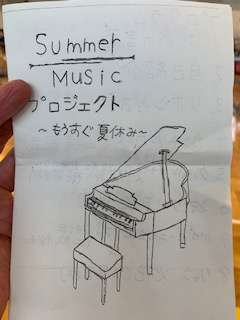 Summer
Music
プロジェクト
～もうすぐ夏休み～